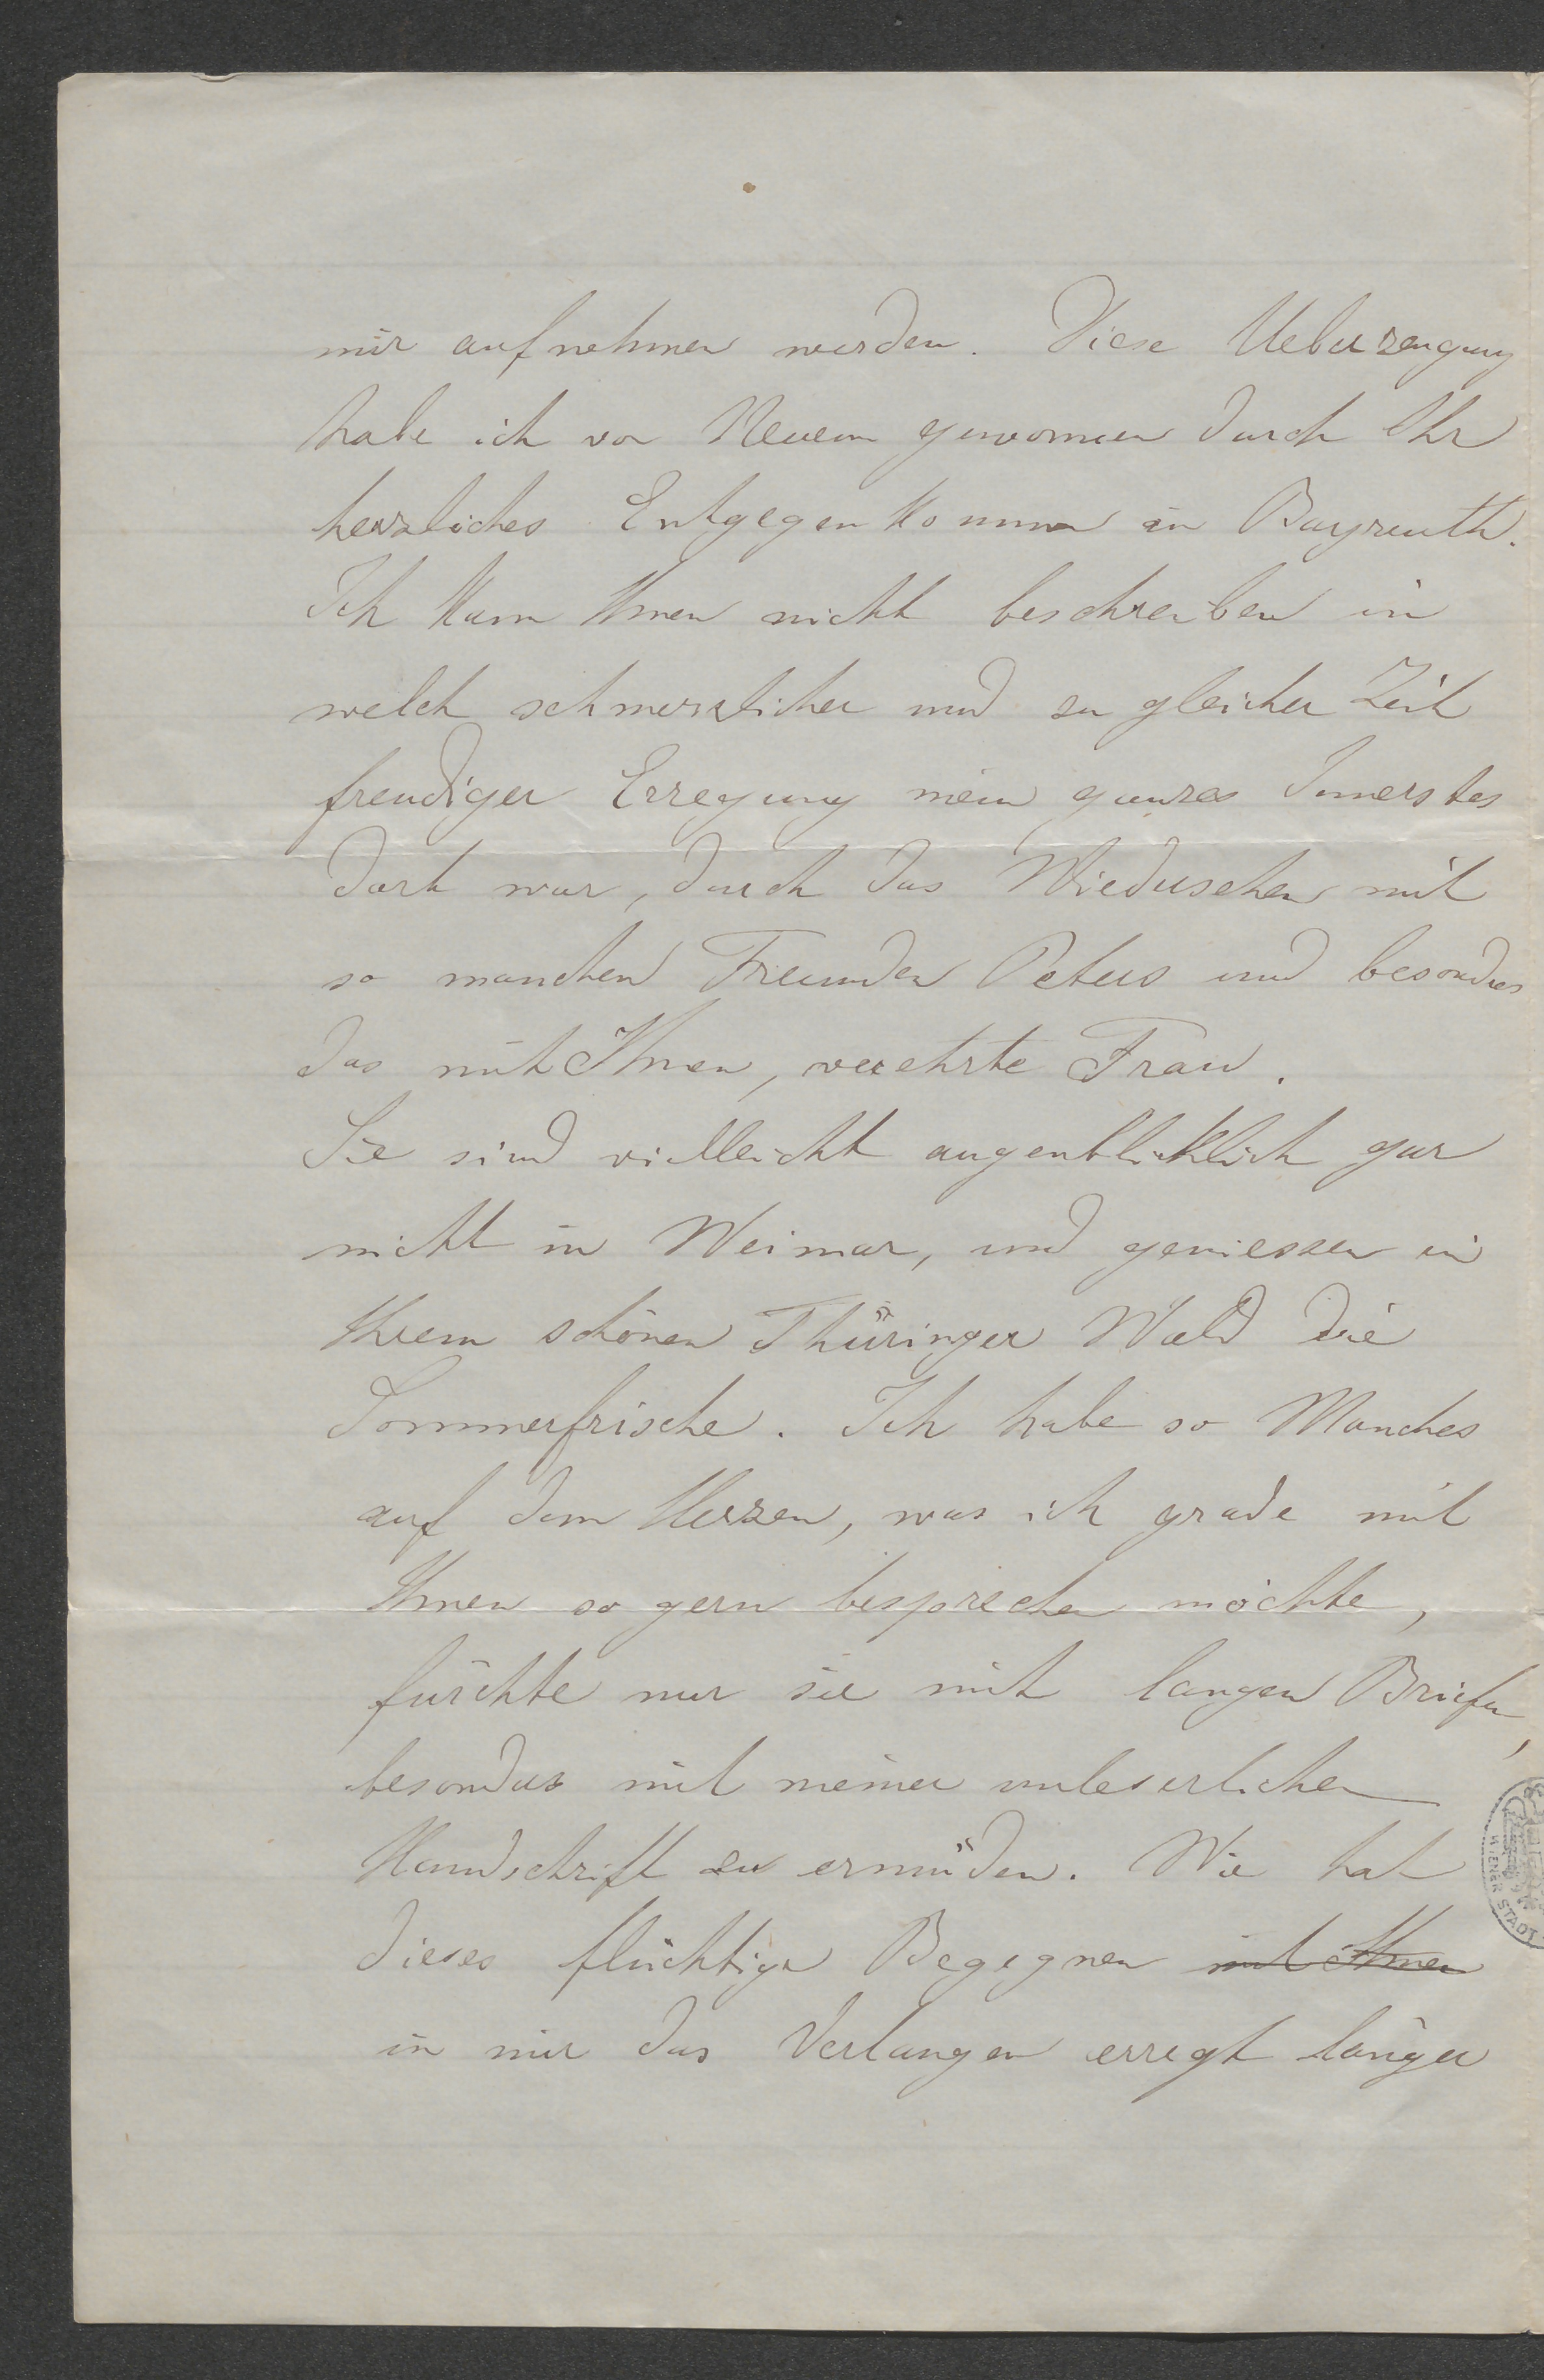 mir aufnehmen werden. Diese Ueberzeugung
habe ich von Neuem gewonnen durch Ihr
herzliches Entgegenkommen in Bayreuth.
Ich kann Ihnen nicht beschreiben in
welch schmerzlicher und zu gleicher Zeit
freudiger Erregung mein ganzes Innerstes
dort war, durch das Wiedersehen mit
so manchen Freunden Peters und besonders
das mit Ihnen, verehrte Frau.
Sie sind vielleicht augenbliklich gar
nicht in Weimar, und geniessen in
Ihrem schönen Thüringer Wald die
Sommerfrische. Ich habe so Manches
auf dem Herzen, was ich grade mit
Ihnen so gern besprechen möchte,
fürchte nur sie mit langen Briefen,
besonders mit meiner unleserlichen
Handschrift zu ermüden. Wie hat
dieses flüchtige Begegnen mit Ihnen
in mir das Verlangen erregt länger
WIENER STADT